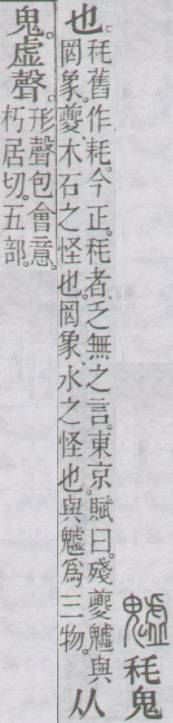 魖秏鬼
也。
秏舊作耗。今正。秏者、乏無之言。東京賦曰。殘夔魖與
罔象。夔、木石之怪也。罔象、水之怪也。與魖爲三物。
从
鬼。虛聲。
形聲包會意。
朽居切。五部。